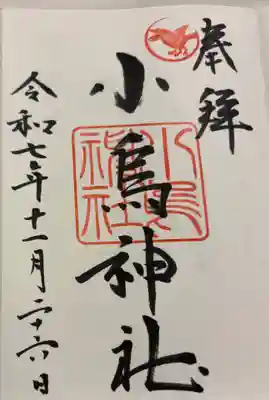 奉拝
小鳥神社
小鳥神社
令和七年十一月二十六日